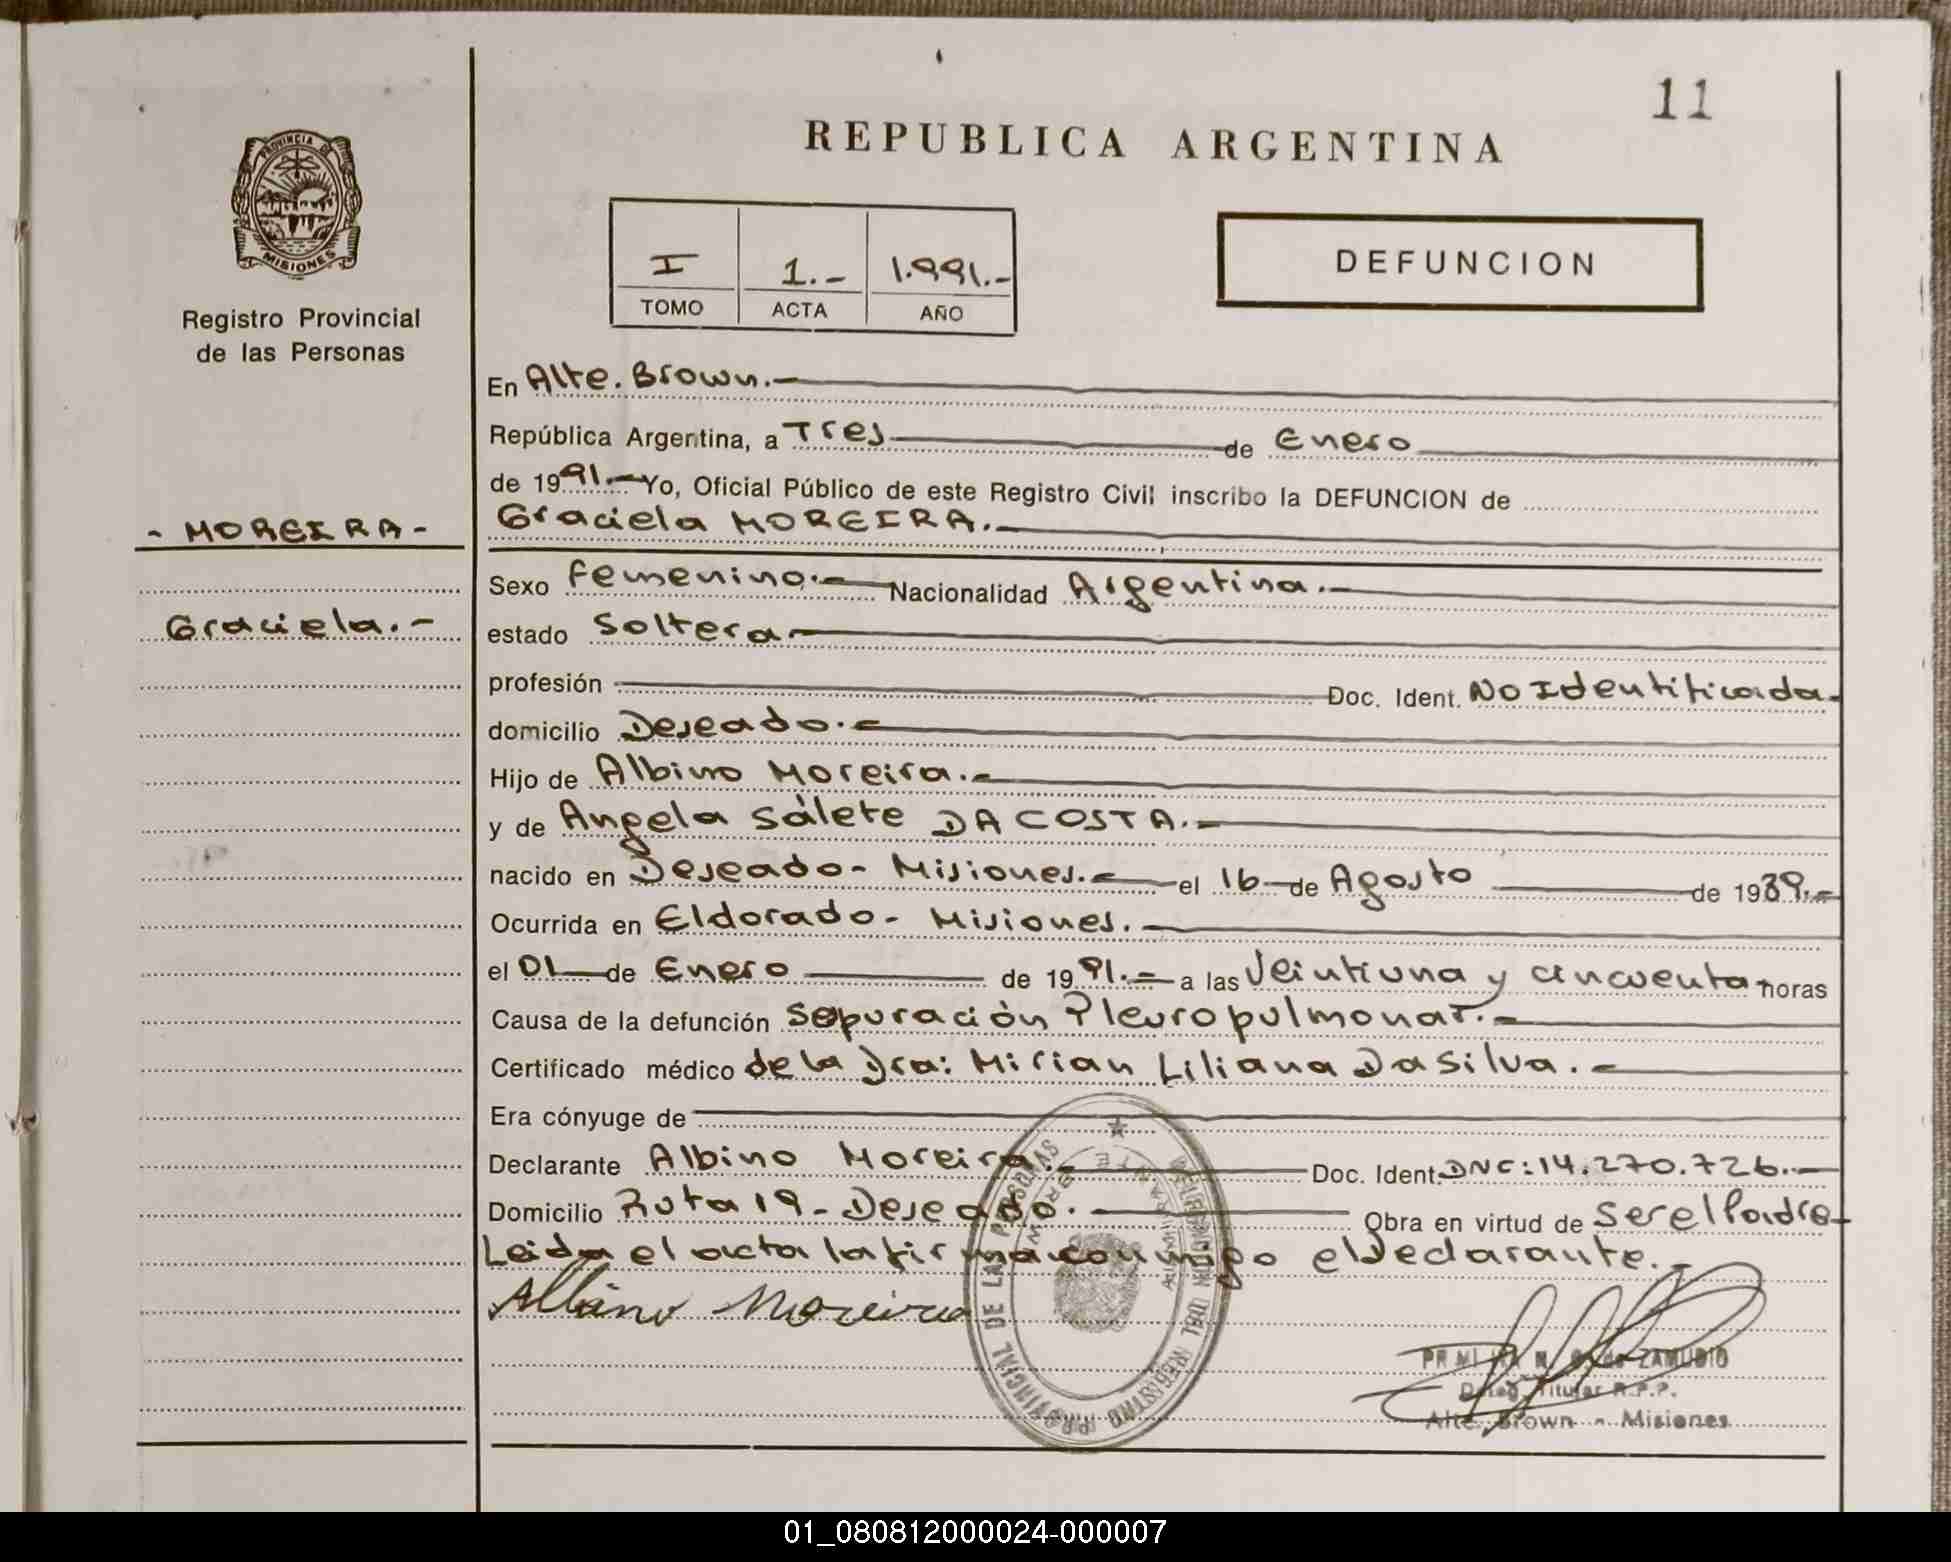 11
REPUBLICA ARGENTINA
PROVINCIA DE
MISIONES
Registro Provincial
de las Personas
I 1.- 1.991.-
TOMO ACTA AÑO
DEFUNCION
En Alte. Brown.-
República Argentina, a Tres de Enero
de 1991.- Yo, Oficial Público de este Registro Civil inscribo la DEFUNCION de
- MOREIRA -
Graciela MOREIRA.-
Sexo Femenino.- Nacionalidad Argentina.-
Graciela.-
estado Soltera-
profesión Doc. Ident. No Identificada-
domicilio Deseado.-
Hijo de Albino Moreira.-
y de Angela Sálete DA COSTA.-
nacido en Deseado- Misiones.- el 16 de Agosto de 1989.-
Ocurrida en Eldorado- Misiones.-
el 01 de Enero de 1991.- a las Veintiuna y cincuenta horas
Causa de la defunción Sepuración Pleuropulmonar.-
Certificado médico de la Dra: Mirian Liliana Da Silva.-
Era cónyuge de
Declarante Albino Moreira.- Doc. Ident. DNC: 14.270.726.-
Domicilio Ruta 19- Deseado.- Obra en virtud de ser el Padre-
Leida el acta la firma conmigo el Declarante.-
Albino Moreira
REGISTRO PROVINCIAL DE LAS PERSONAS
ZAMUDIO
Deleg. Titular R.P.P.
Alte. Brown - Misiones
01_080812000024-000007